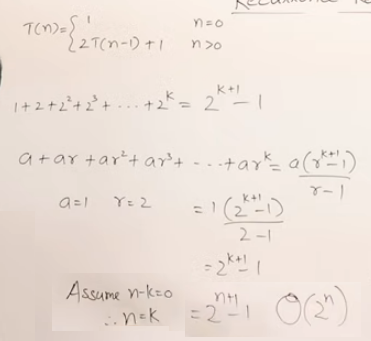 T(n) = { 1 n=0
2T(n-1)+1 n>0
1+2+2²+2³+ . . . +2^k = 2^(k+1) - 1
a+ar+ar²+ar³+ - - - +ar^k = a(r^(k+1)-1) / r-1
a=1 r=2 = 1(2^(k+1)-1) / 2-1
= 2^(k+1)-1
Assume n-k=0
∴ n=k = 2^(n+1)-1 O(2^n)